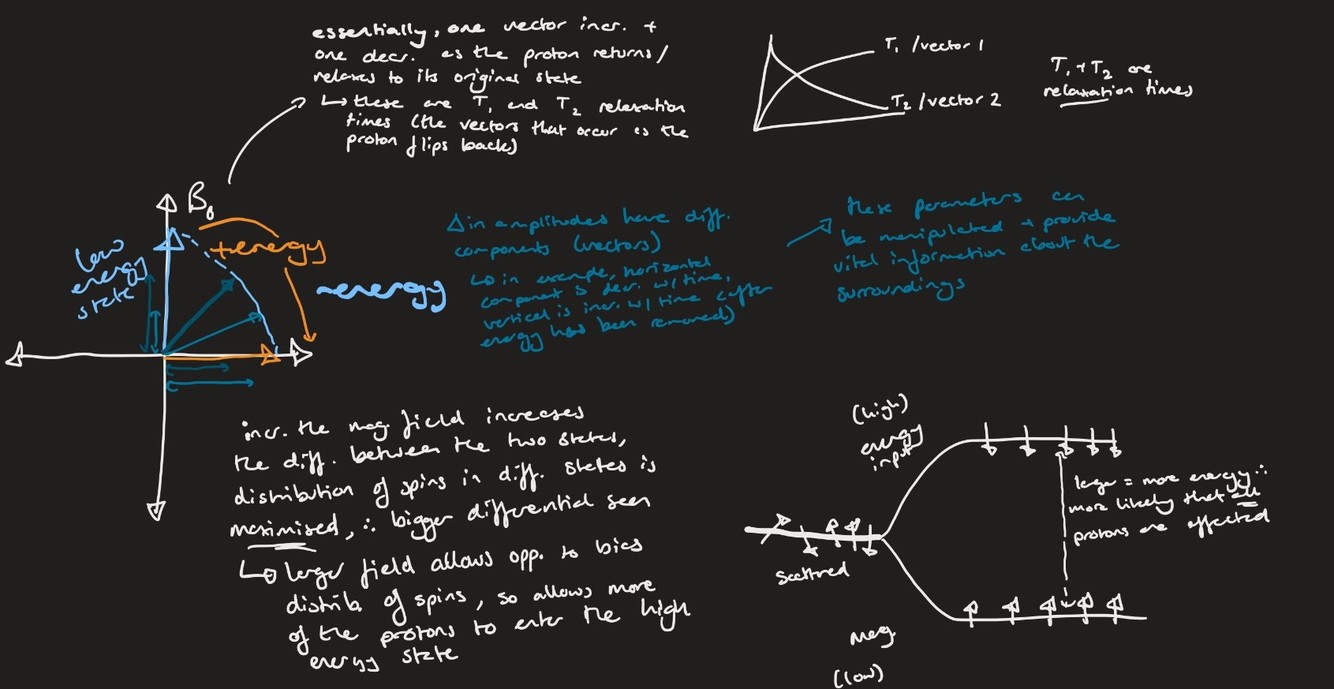 essentially, one vector incr. +
one decr. as the proton returns/
relaxes to its original state
↳ these are T₁ and T₂ relaxation
times (the vectors that occur as the
proton flips back)
T₁ /vector 1
T₂ /vector 2
T₁ + T₂ are
relaxation times
B₀
+energy
low
energy
state
-energy
Δ in amplitudes have diff.
components (vectors)
↳ in example, horizontal
component is decr. w/ time,
vertical is incr. w/ time (after
energy has been removed)
these parameters can
be manipulated + provide
vital information about the
surroundings
incr. the mag field increases
the diff. between the two states,
distribution of spins in diff. states is
maximised, ∴ bigger differential seen
↳ larger field allows opp. to bias
distrib of spins, so allows more
of the protons to enter the high
energy state
(high)
energy
input
scattred
large = more energy ∴
more likely that all
protons are affected
meg
(low)